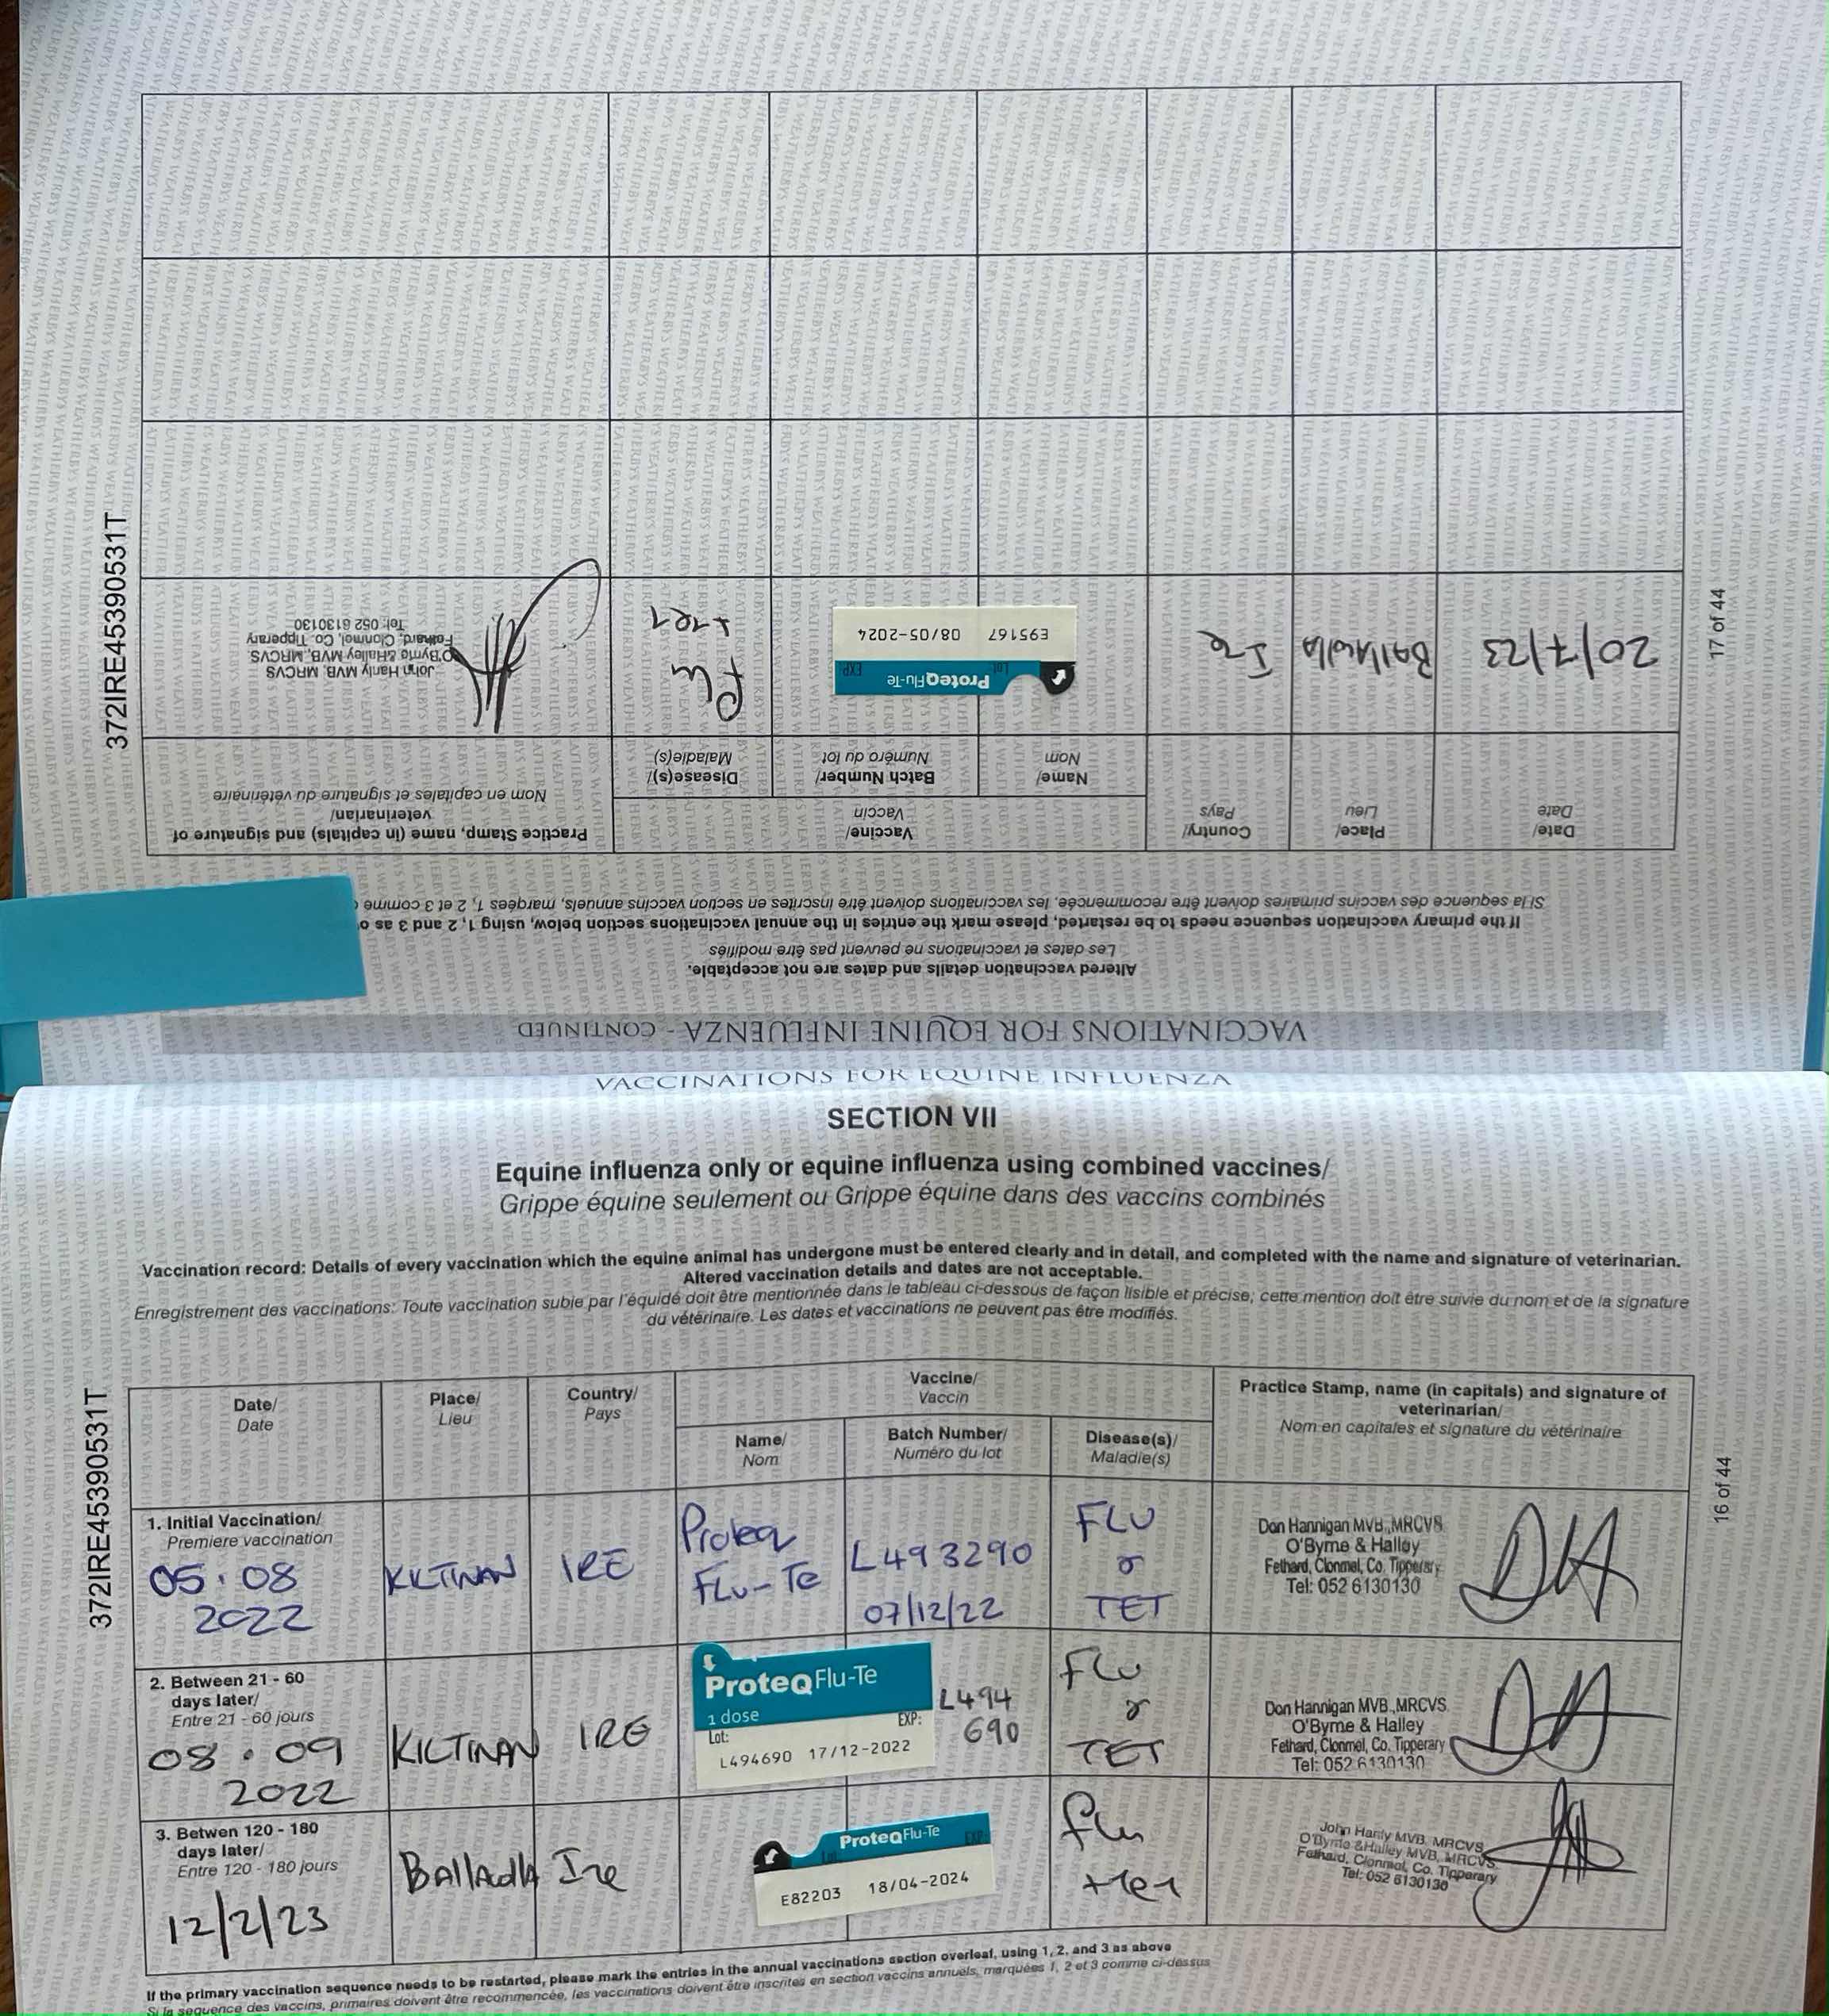 VACCINATIONS FOR EQUINE INFLUENZA - CONTINUED
Altered vaccination details and dates are not acceptable.
Les dates et vaccinations ne peuvent pas être modifiés
If the primary vaccination sequence needs to be restarted, please mark the entries in the annual vaccinations section below, using 1, 2 and 3 as
Si la séquence des vaccins primaires doivent être recommencée, les vaccinations doivent être inscrites en section vaccins annuels, marqées 1, 2 et 3 comme
Date/
Date
Place/
Lieu
Country/
Pays
Vaccine/
Vaccin
Name/
Nom
Batch Number/
Numéro du lot
Disease(s)/
Maladie(s)
Practice Stamp, name (in capitals) and signature of
veterinarian/
Nom en capitales et signature du vétérinaire
20/7/23
Ire
ProteqFlu-Te
Lot
EXP
E95167 08/05-2024
Flu
+ret
John Hanly MVB, MRCVS
O'Byrne &Halley MVB, MRCVS.
Fethard, Clonmel, Co. Tipperary
Tel: 052 6130130
372IRE45390531T
17 of 44
VACCINATIONS FOR EQUINE INFLUENZA
SECTION VII
Equine influenza only or equine influenza using combined vaccines/
Grippe équine seulement ou Grippe équine dans des vaccins combinés
Vaccination record: Details of every vaccination which the equine animal has undergone must be entered clearly and in detail, and completed with the name and signature of veterinarian.
Altered vaccination details and dates are not acceptable.
Enregistrement des vaccinations: Toute vaccination subie par l'équidé doit être mentionnée dans le tableau ci-dessous de façon lisible et précise; cette mention doit être suivie du nom et de la signature
du vétérinaire. Les dates et vaccinations ne peuvent pas être modifiés.
372IRE45390531T
16 of 44
Date/
Date
Place/
Lieu
Country/
Pays
Vaccine/
Vaccin
Name/
Nom
Batch Number/
Numéro du lot
Disease(s)/
Maladie(s)
Practice Stamp, name (in capitals) and signature of
veterinarian/
Nom en capitales et signature du vétérinaire
1. Initial Vaccination/
Premiere vaccination
05.08
2022
KILTINAN
IRE
Proteq
FLu-Te
L493290
07/12/22
FLU
&
TET
Don Hannigan MVB.,MRCVS
O'Byrne & Halley
Fethard, Clonmel, Co. Tipperary
Tel: 052 6130130
2. Between 21 - 60
days later/
Entre 21 - 60 jours
08.09
2022
KILTINAN
IRE
ProteqFlu-Te
1 dose
Lot:
EXP:
L494690 17/12-2022
L494
690
FLU
&
TET
Don Hannigan MVB.,MRCVS
O'Byrne & Halley
Fethard, Clonmel, Co. Tipperary
Tel: 052 6130130
3. Betwen 120 - 180
days later/
Entre 120 - 180 jours
12/2/23
Ire
ProteqFlu-Te
Lot
EXP
E82203 18/04-2024
flu
+tet
John Hanly MVB, MRCVS
O'Byrne &Halley MVB, MRCVS.
Fethard, Clonmel, Co. Tipperary
Tel: 052 6130130
If the primary vaccination sequence needs to be restarted, please mark the entries in the annual vaccinations section overleaf, using 1, 2, and 3 as above
Si la séquence des vaccins, primaires doivent être recommencée, les vaccinations doivent être inscrites en section vaccins annuels, marquées 1, 2 et 3 comme ci-dessus